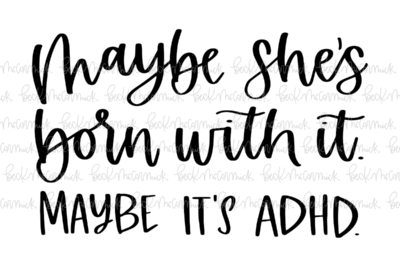 Maybe she's
born with it.
MAYBE IT'S ADHD.